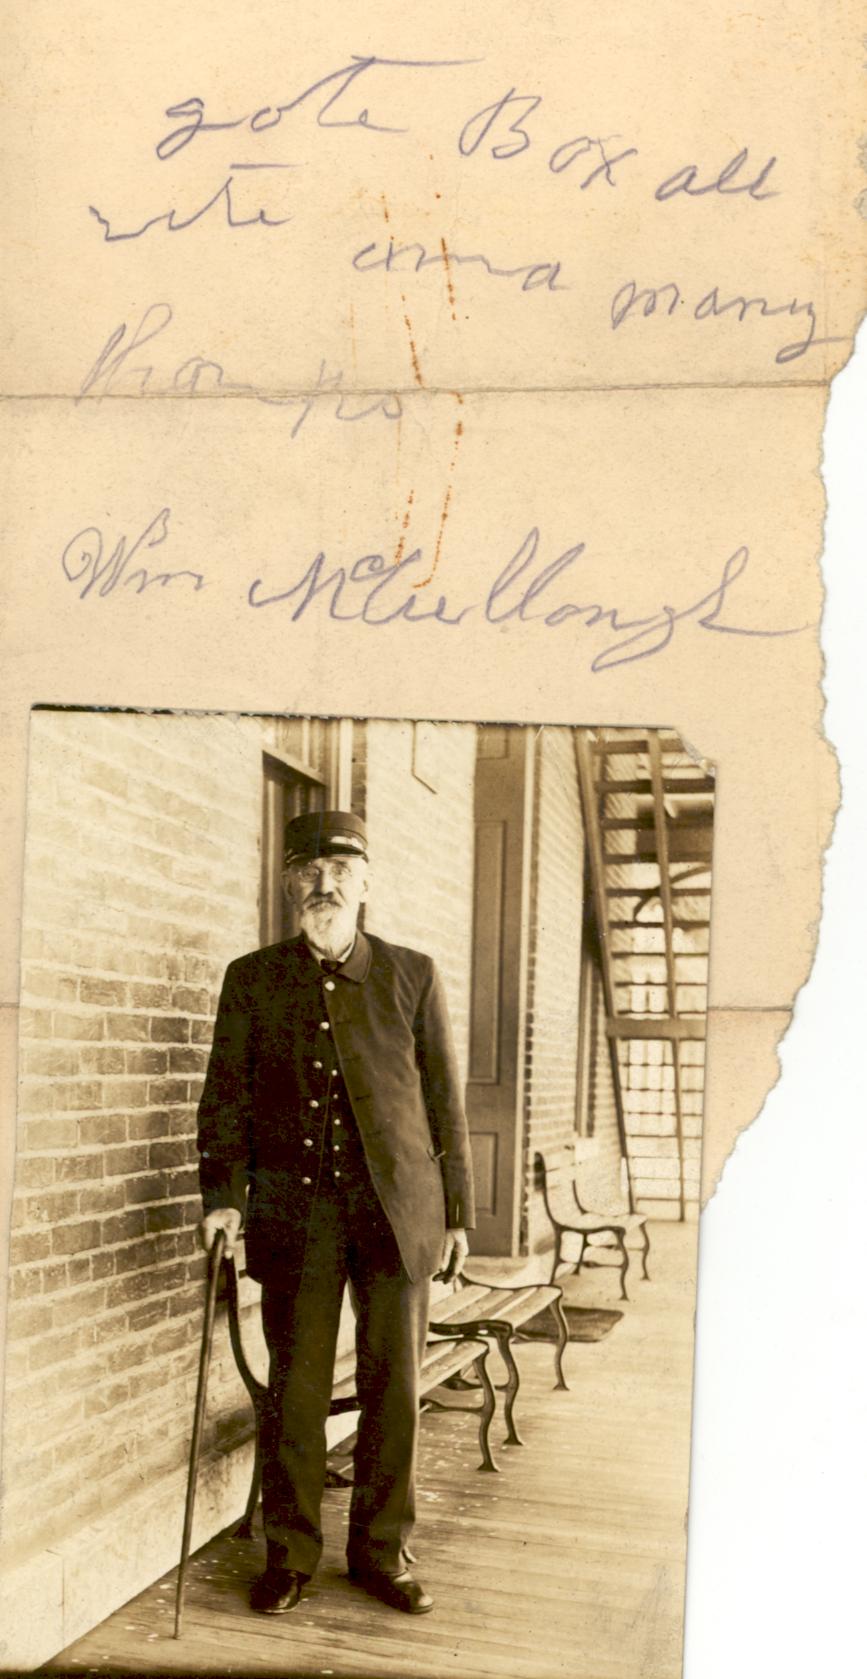 gote Box all
rite annd many
thanks
Wm McCullough